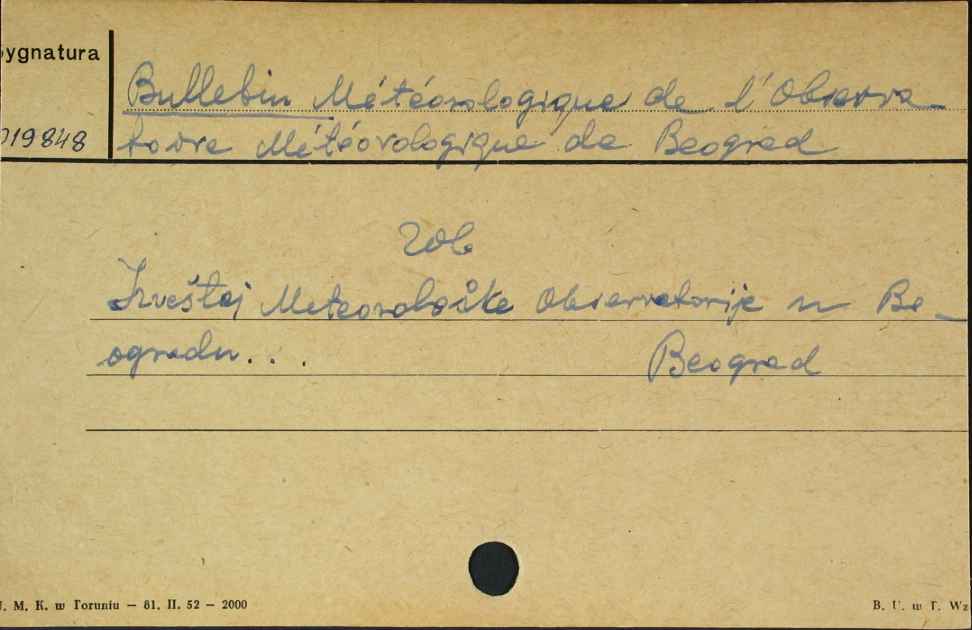 ygnatura
Bulletin Météorologique de l'Observa-
019848 toire Météorologique de Beograd
zob
Izveštaj Meteorološke Observatorije u Be-
ogradu... Beograd
J. M. K. w Toruniu — 81. II. 52 — 2000 B. U. w T. Wz